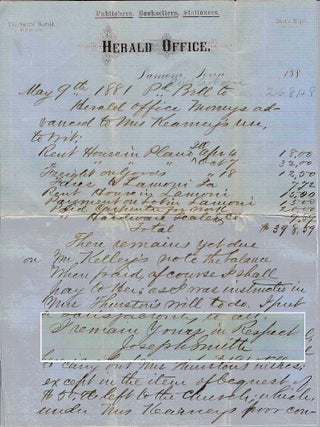 Publishers, Booksellers, Stationers.
The Saints' Herald
HERALD OFFICE,
Lamoni, Iowa 188
May 9th 1881 Pd Bill to
Herald Office Moneys ad-
vanced to Mrs Kearneys use,
to wit:
Rent House in Plano 18,00
32,00
Freight on Goods 18 12,50
Fares to Lamoni Ia 7 72
Rent House in Lamoni
Payment on lot in Lamoni
Paid Carpenter
Hardware
Total $398,59
There remains yet due
on Mr Kelley's note the balance
When paid, of course I shall
pay to Her; as I was instructed in
Mrs Thurston's will to do. I put
satisfactory to all;
I remain Yours in Respect
Joseph Smith
to carry out Mrs Thurston's wishes;
except in the item of bequest of
left to the church; which,
under Mrs Kearneys poor con-